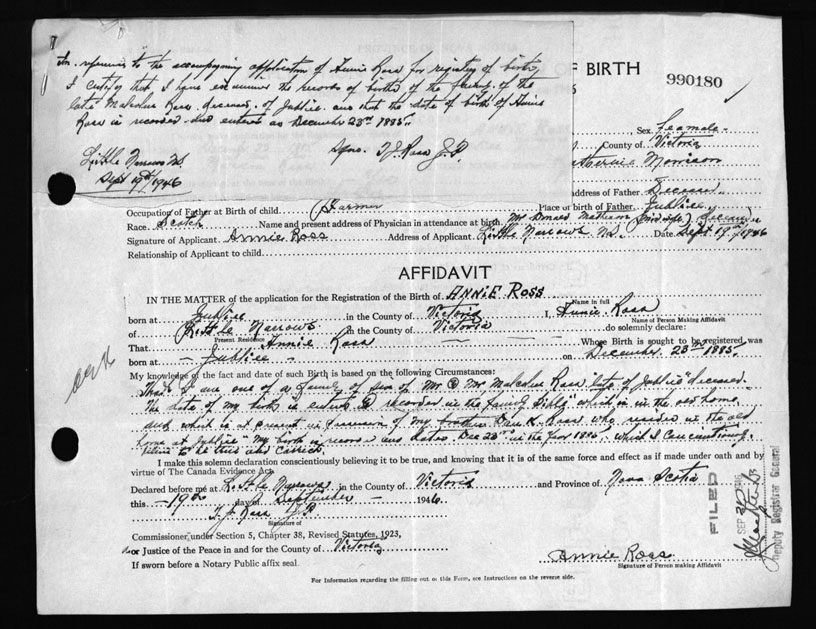 In reference to the accompanying application of Annie Ross for registry of birth,
I certify that I have examined the records of births of the family of the
late Malcolm Ross, deceased, of Jubilee and that the date of birth of Annie
Ross is recorded and entered as December 23rd 1885.
Little Narrows NS
Sept 19th/1946
Sgno. T J Ross J.P.
OF BIRTH
990180
Sex Feamale
County of Victoria
Catherine Morrison
address of Father Deceased
Occupation of Father at Birth of child Farmer Place of birth of Father Jubilee
Race Scotch Name and present address of Physician in attendance at birth Mr Donald Matheson (mid wife) deceased
Signature of Applicant Annie Ross Address of Applicant Little Narrows N.S. Date Sept 19th/1946
Relationship of Applicant to child
AFFIDAVIT
IN THE MATTER of the application for the Registration of the Birth of ANNIE ROSS
Name in full
born at Jubilee in the County of Victoria I, Annie Ross
Name of Person Making Affidavit
of Little Narrows in the County of Victoria do solemnly declare:
Present Residence
That Annie Ross Whose Birth is sought to be registered was
born at - Jubilee - on December 23rd 1885.
My knowledge of the fact and date of such Birth is based on the following Circumstances:
That I am one of a family of of Mr & Mrs Malcolm Ross late of Jubilee deceased.
The date of my birth is entered & recorded in the family Bible which is in the old home
and which is at present in possession of my brother Dan K. Ross who resides in the old
home at Jubilee My birth is record and dated Dec 23rd in the year 1885, which I
to be true and correct.
I make this solemn declaration conscientiously believing it to be true, and knowing that it is of the same force and effect as if made under oath and by
virtue of The Canada Evidence Act.
Declared before me at Little Narrows in the County of Victoria and Province of Nova Scotia
this - 19th day of September - 1946
T. J Ross J P
Signature of
Commissioner under Section 5, Chapter 38, Revised Statutes, 1923,
or Justice of the Peace in and for the County of Victoria
If sworn before a Notary Public affix seal.
Annie Ross
Signature of Person making Affidavit
FILED
SEP
Deputy Registrar General
For Information regarding the filling out of this Form, see Instructions on the reverse side.